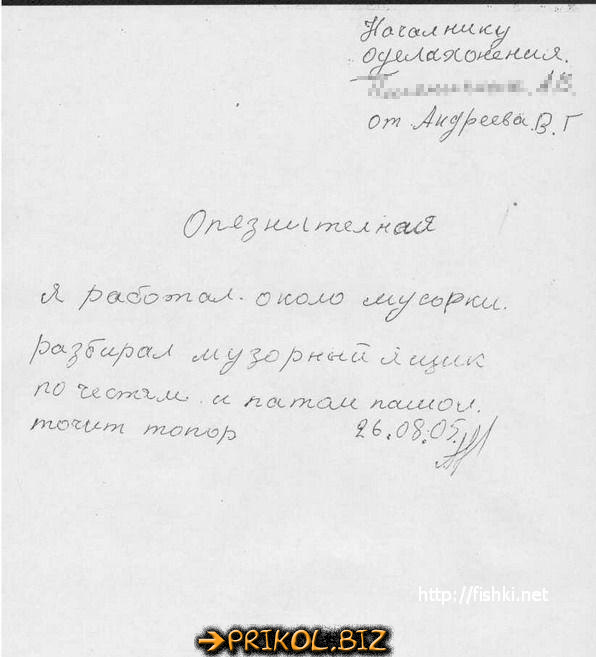 Началнику
оделахонения.
А.В.
от Андреева В.Г
Опезнителная
я работал. около мусорки.
разбирал музорный ящик
по честям. и патом пашол.
точит топор 26.08.05.
http://fishki.net
PRIKOL.BIZ